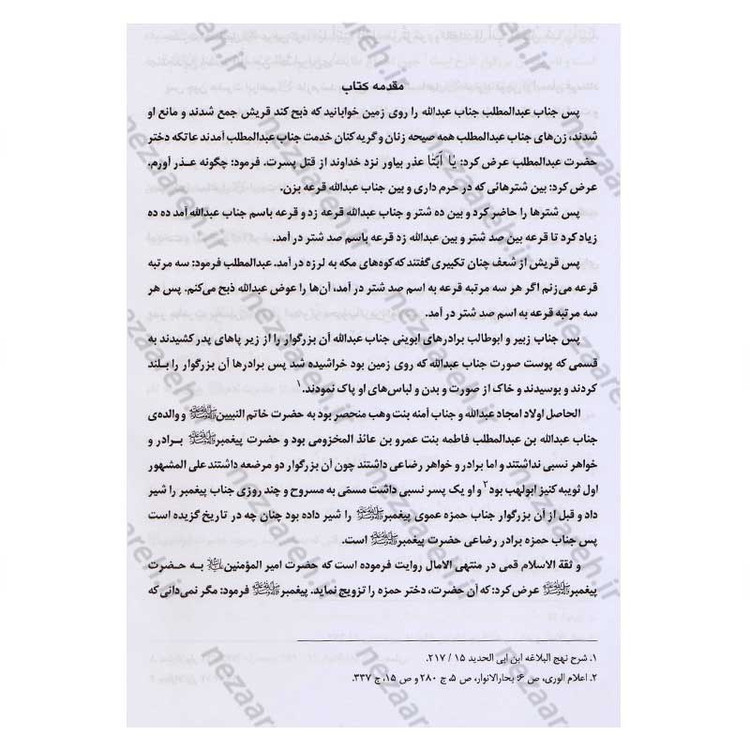 مقدمه کتاب
پس جناب عبدالمطلب جناب عبدالله را روی زمین خوابانید که ذبح کند قریش جمع شدند و مانع او
شدند، زن‌های جناب عبدالمطلب همه صیحه زنان و گریه کنان خدمت جناب عبدالمطلب آمدند عاتکه دختر
حضرت عبدالمطلب عرض کرد: یٰا أَبَتٰا عذر بیاور نزد خداوند از قتل پسرت. فرمود: چگونه عذر آورم.
عرض کرد: بین شترهائی که در حرم داری و بین جناب عبدالله قرعه بزن.
پس شترها را حاضر کرد و بین ده شتر و جناب عبدالله قرعه زد و قرعه باسم جناب عبدالله آمد ده ده
زیاد کرد تا قرعه بین صد شتر و بین عبدالله زد قرعه باسم صد شتر در آمد.
پس قریش از شعف چنان تکبیری گفتند که کوه‌های مکه به لرزه در آمد. عبدالمطلب فرمود: سه مرتبه
قرعه می‌زنم اگر هر سه مرتبه قرعه به اسم صد شتر در آمد، آن‌ها را عوض عبدالله ذبح می‌کنم. پس هر
سه مرتبه قرعه به اسم صد شتر در آمد.
پس جناب زبیر و ابوطالب برادرهای ابوینی جناب عبدالله آن بزرگوار را از زیر پاهای پدر کشیدند به
قسمی که پوست صورت جناب عبدالله که روی زمین بود خراشیده شد پس برادرها آن بزرگوار را بلند
کردند و بوسیدند و خاک از صورت و بدن و لباس‌های او پاک نمودند.۱
الحاصل اولاد امجاد عبدالله و جناب آمنه بنت وهب منحصر بود به حضرت خاتم النبیین ﷺ و والده‌ی
جناب عبدالله بن عبدالمطلب فاطمه بنت عمرو بن عائذ المخزومی بود و حضرت پیغمبر ﷺ برادر و
خواهر نسبی نداشتند و اما برادر و خواهر رضاعی داشتند چون آن بزرگوار دو مرضعه داشتند علی المشهور
اول ثویبه کنیز ابولهب بود۲ و او یک پسر نسبی داشت مسمّی به مسروح و چند روزی جناب پیغمبر را شیر
داد و قبل از آن بزرگوار جناب حمزه عموی پیغمبر ﷺ را شیر داده بود چنان چه در تاریخ گزیده است
پس جناب حمزه برادر رضاعی حضرت پیغمبر ﷺ است.
و ثقة الاسلام قمی در منتهی الامال روایت فرموده است که حضرت امیر المؤمنین به حضرت
پیغمبر ﷺ عرض کرد: که آن حضرت، دختر حمزه را تزویج نماید. پیغمبر ﷺ فرمود: مگر نمی‌دانی که
۱. شرح نهج البلاغه ابن ابی الحدید ۱۵ / ۲۱۷.
۲. اعلام الوری، ص ۶؛ بحارالانوار، ص ۵، ج ۲۸۰ و ص ۱۵، ج ۳۳۷.
nezaareh.ir